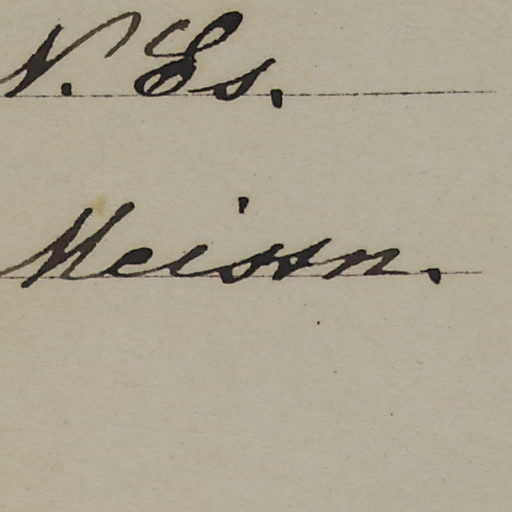 N. Es.
Meissn.